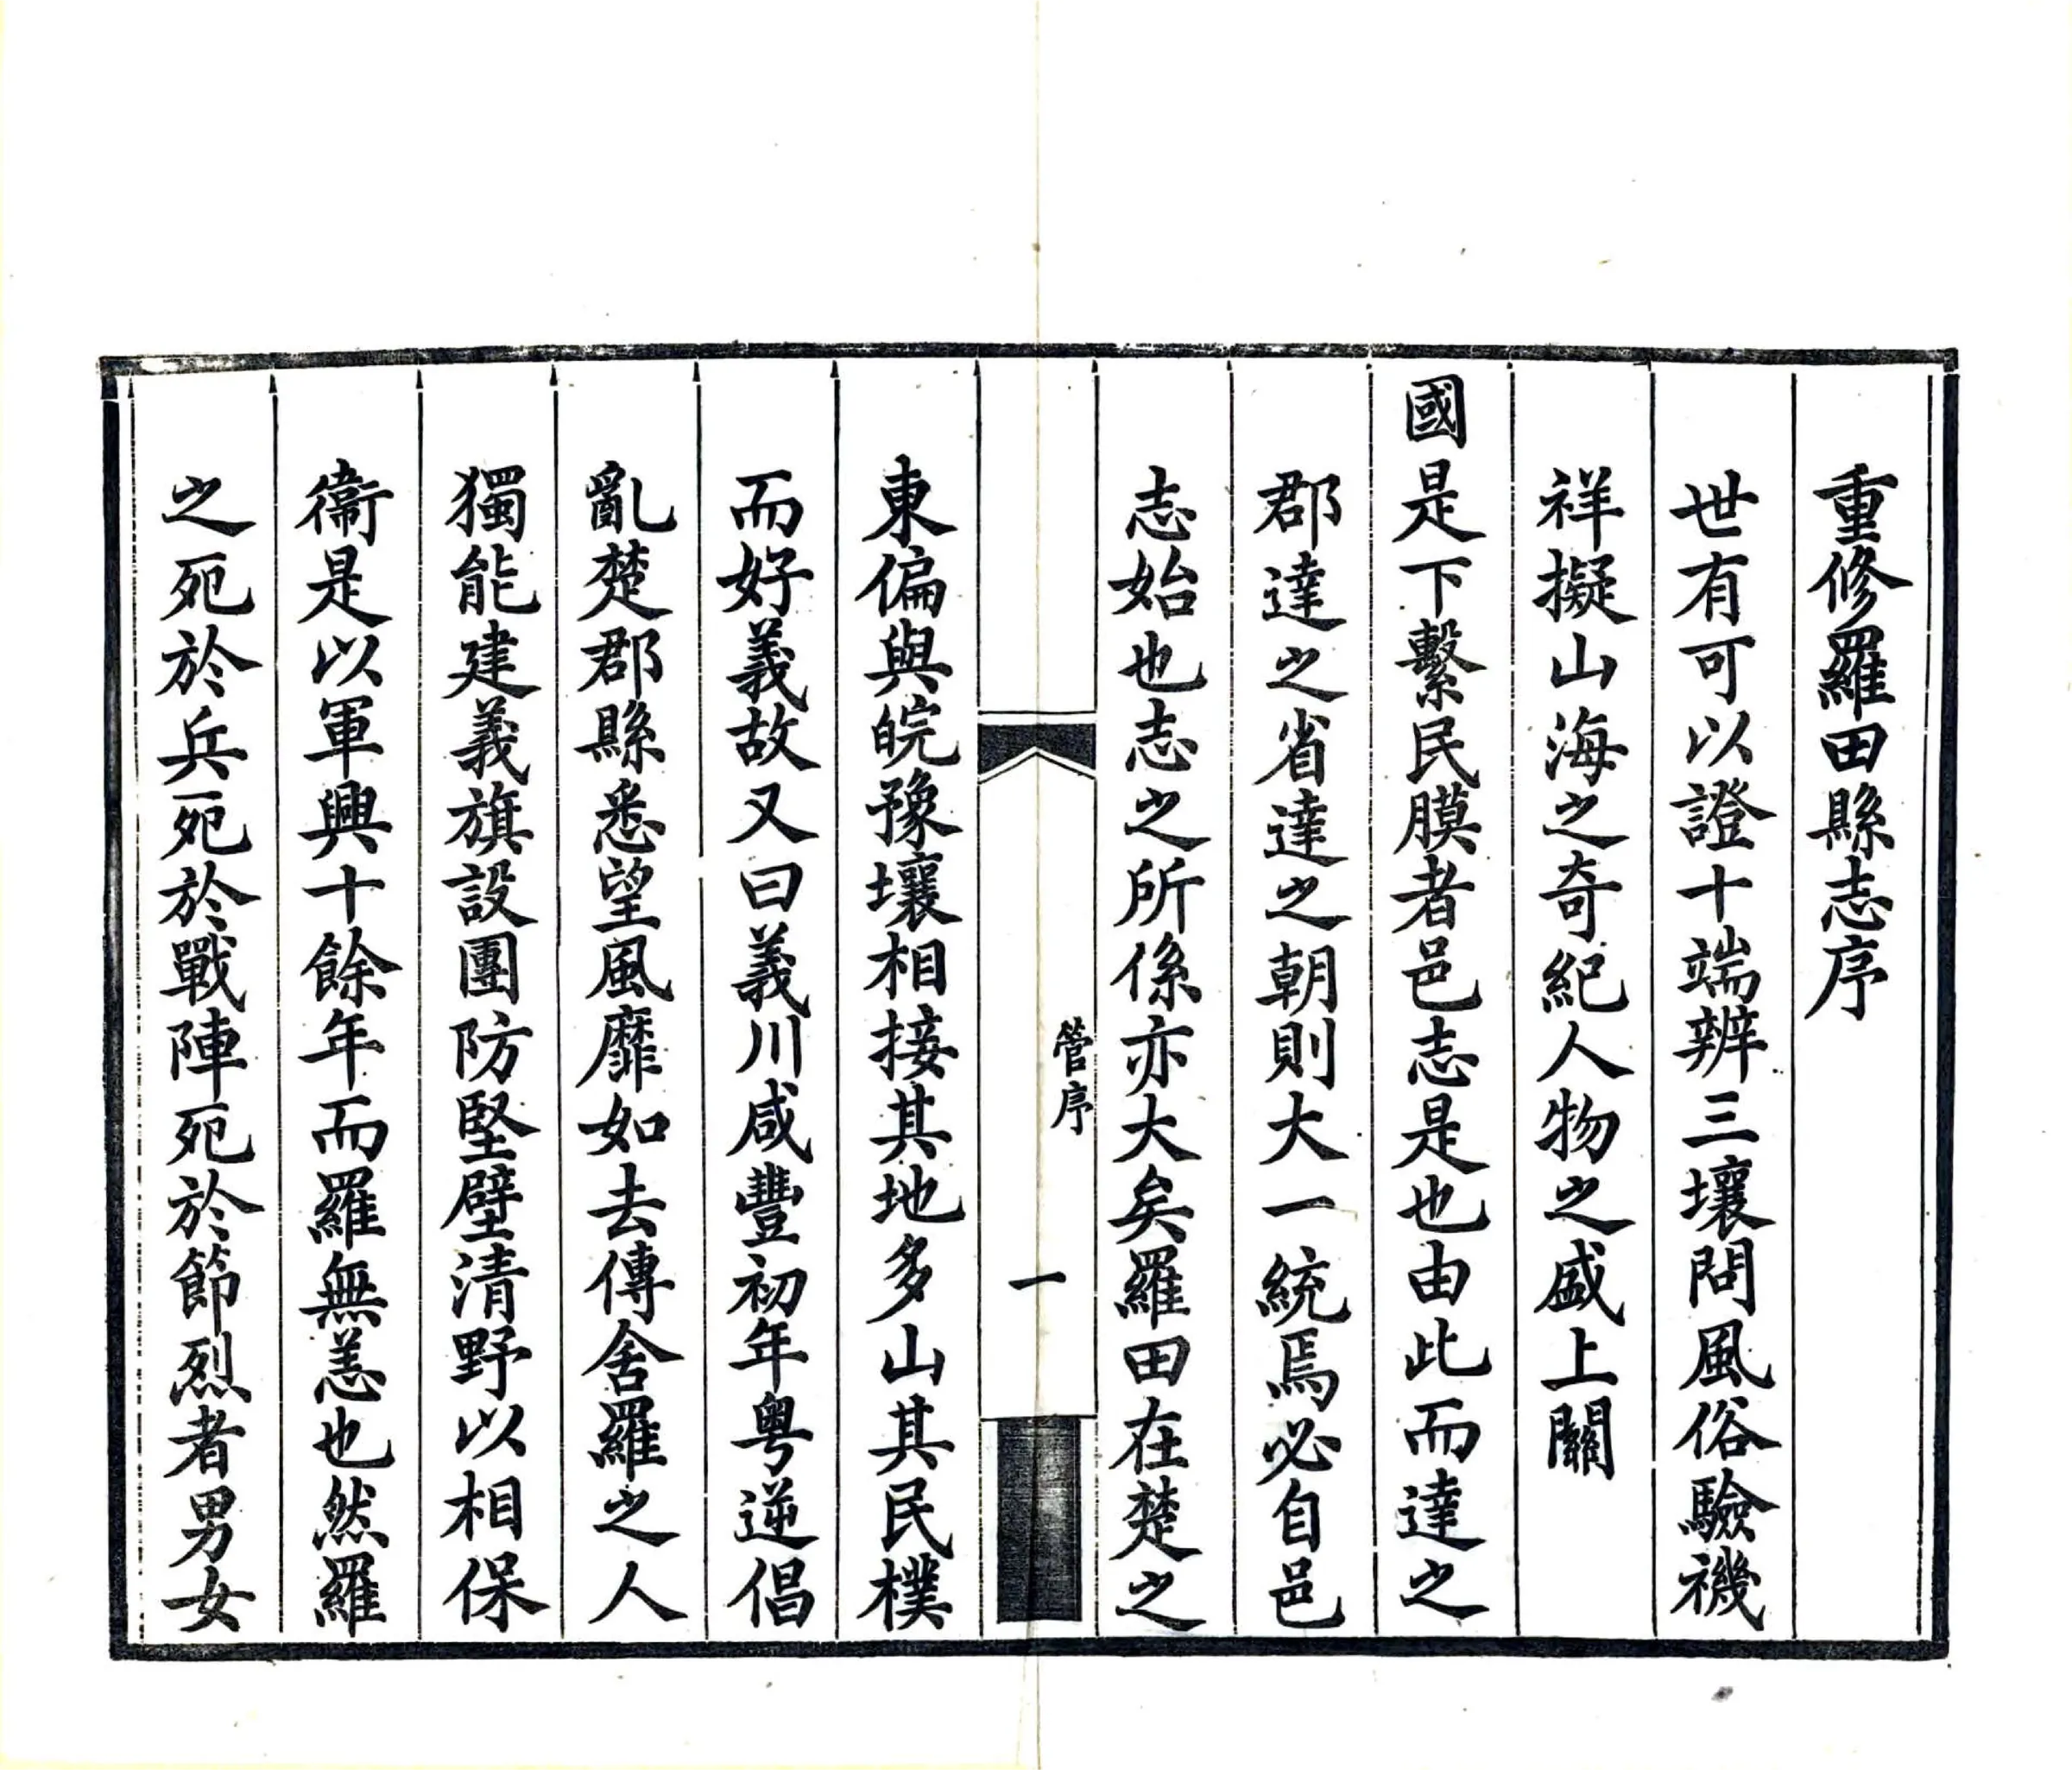 重修羅田縣志序
世有可以證十端辨三壤問風俗驗禨
祥擬山海之奇紀人物之盛上關
國是下繫民膜者邑志是也由此而達之
郡達之省達之朝則大一統焉必自邑
志始也志之所係亦大矣羅田在楚之
管序
一
東偏與皖豫壤相接其地多山其民樸
而好義故又曰義川咸豐初年粤逆倡
亂楚郡縣悉望風靡如去傳舍羅之人
獨能建義旗設團防堅壁清野以相保
衞是以軍興十餘年而羅無恙也然羅
之死於兵死於戰陣死於節烈者男女